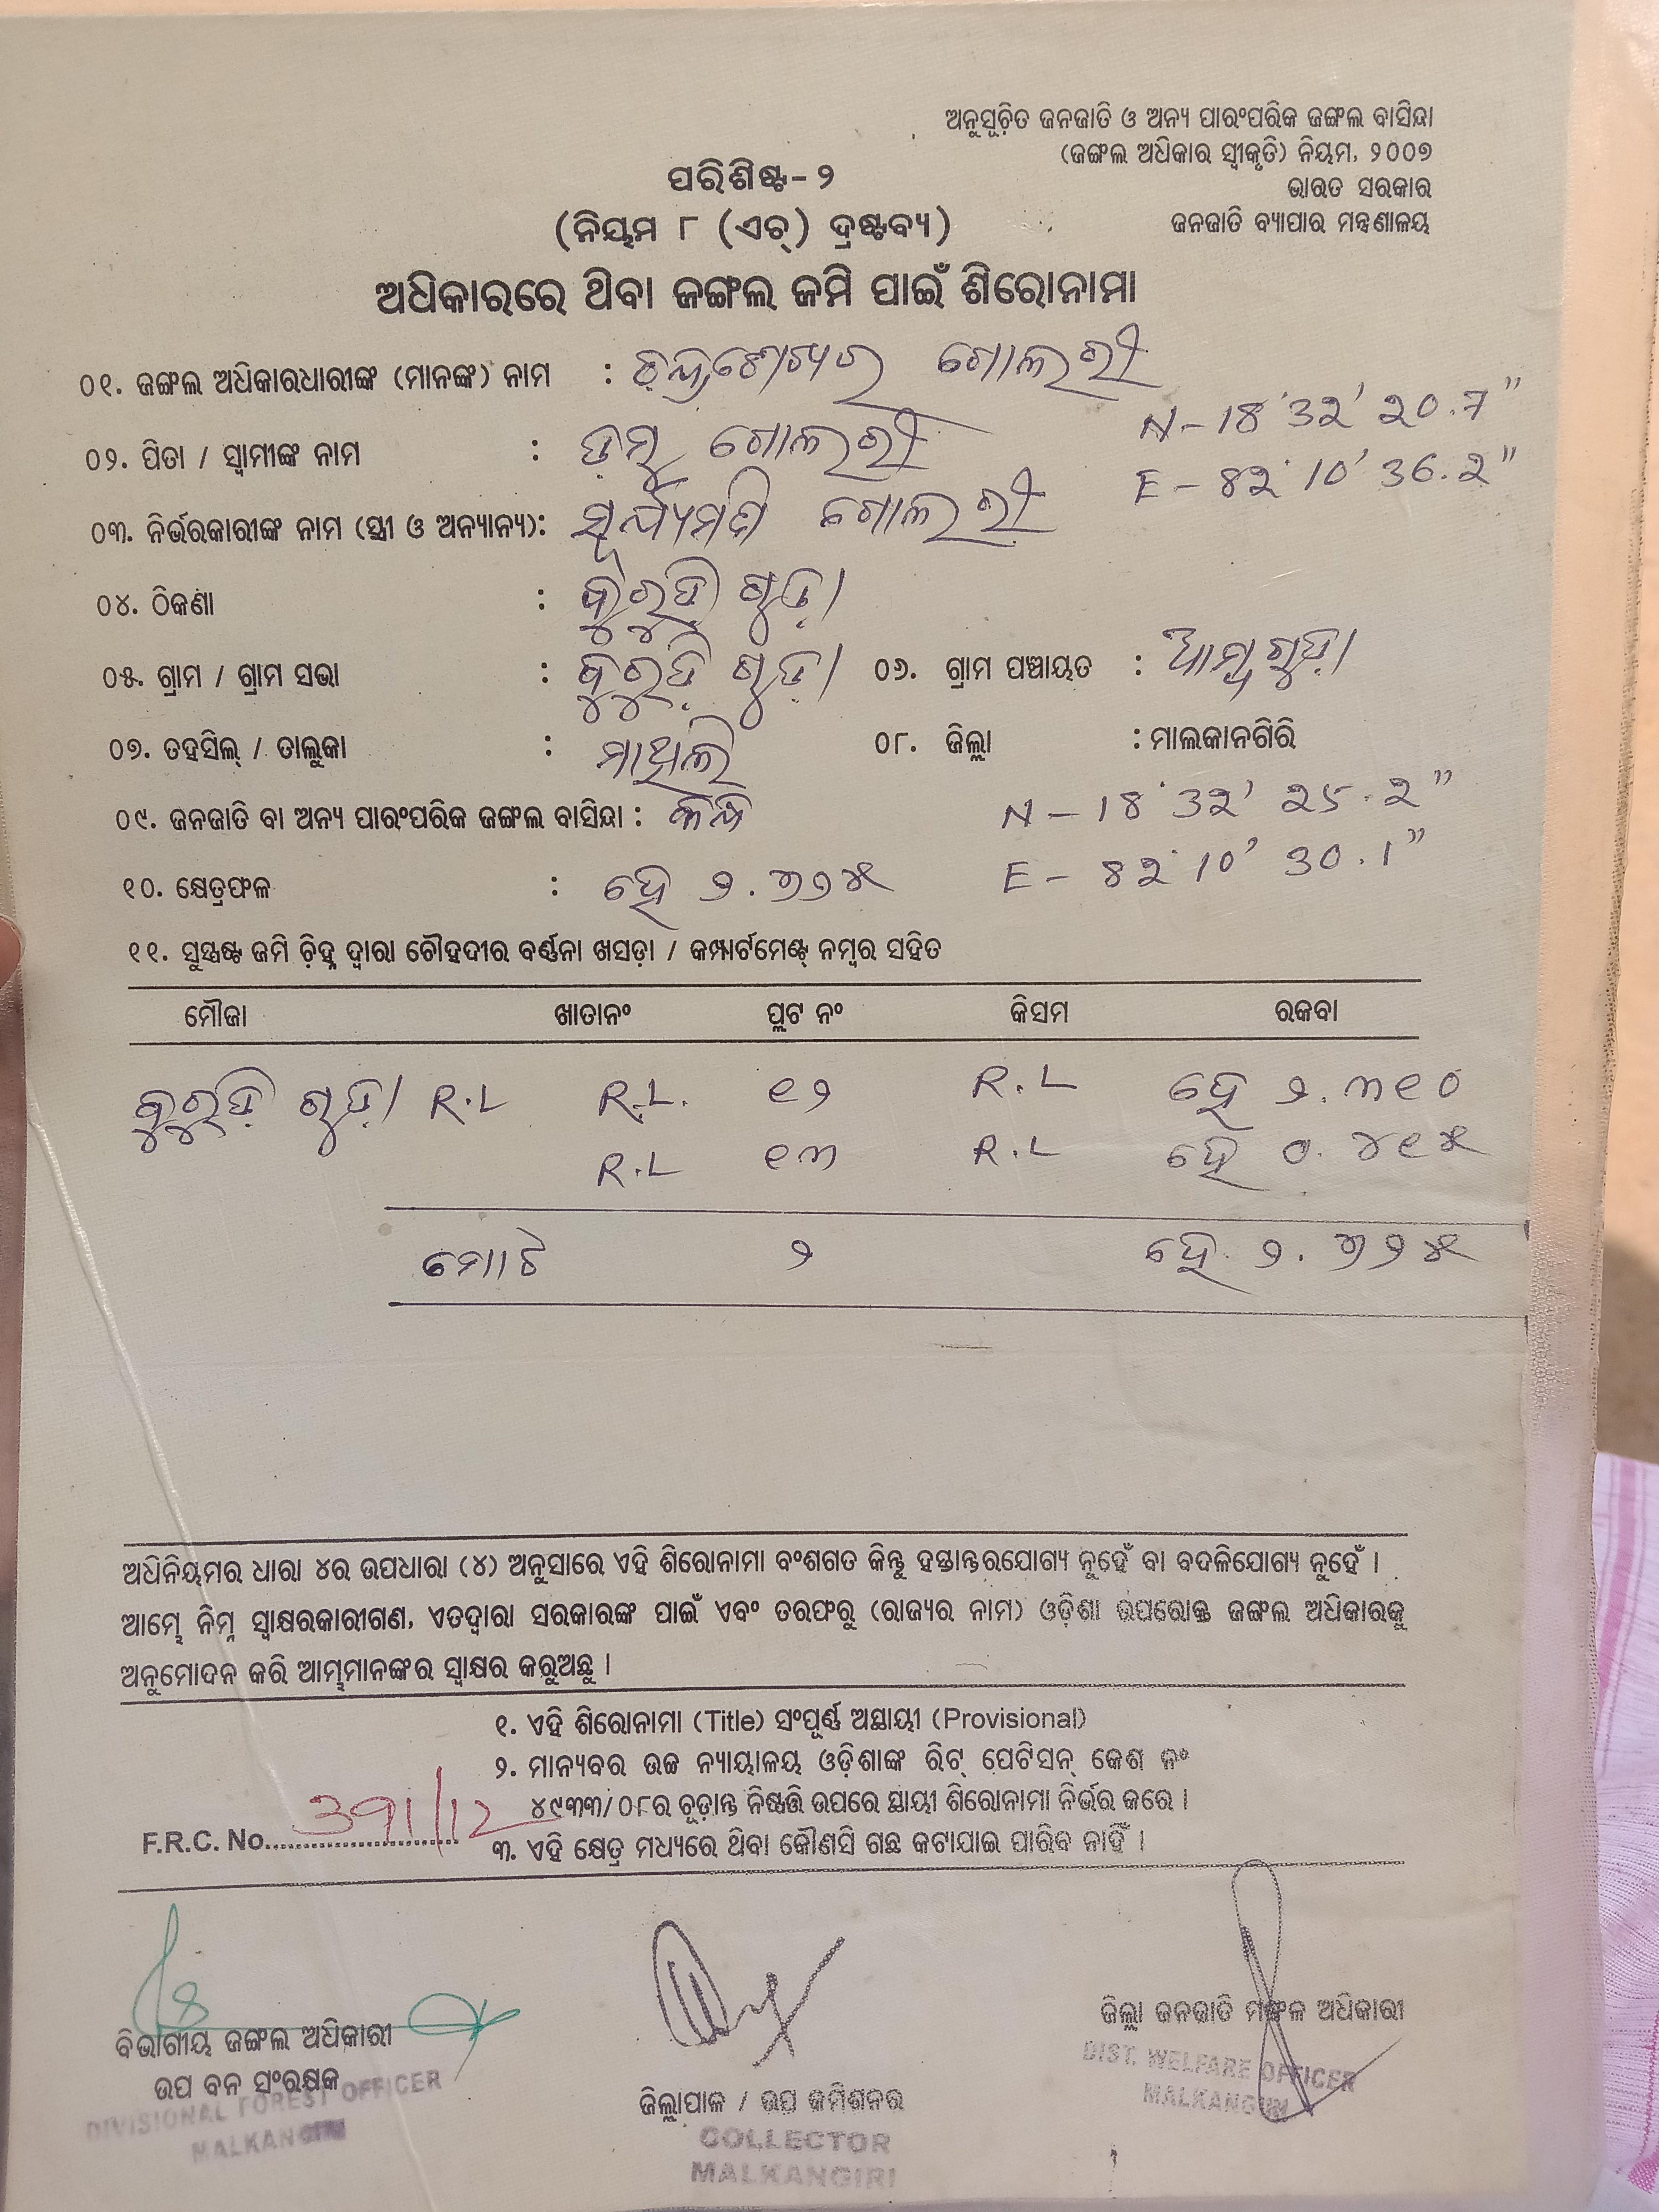 ଅନୁସୂଚିତ ଜନଜାତି ଓ ଅନ୍ୟ ପାରଂପରିକ ଜଙ୍ଗଲ ବାସିନ୍ଦା
(ଜଙ୍ଗଲ ଅଧିକାର ସ୍ୱୀକୃତି) ନିୟମ, ୨୦୦୭
ଭାରତ ସରକାର
ଜନଜାତି ବ୍ୟାପାର ମନ୍ତ୍ରଣାଳୟ
ପରିଶିଷ୍ଟ-୨
(ନିୟମ ୮ (ଏଚ୍) ଦ୍ରଷ୍ଟବ୍ୟ)
ଅଧିକାରରେ ଥିବା ଜଙ୍ଗଲ ଜମି ପାଇଁ ଶିରୋନାମା
୦୧. ଜଙ୍ଗଲ ଅଧିକାରଧାରୀଙ୍କ (ମାନଙ୍କ) ନାମ : ଚନ୍ଦ୍ରଶେଖର ଗୋଲରୀ
N-18°32' 20.7"
୦୨. ପିତା / ସ୍ୱାମୀଙ୍କ ନାମ : ଡମ୍ବୁ ଗୋଲରୀ
E-82°10' 36.2"
୦୩. ନିର୍ଭରକାରୀଙ୍କ ନାମ (ସ୍ତ୍ରୀ ଓ ଅନ୍ୟାନ୍ୟ): ସୂର୍ଯ୍ୟମଣି ଗୋଲରୀ
୦୪. ଠିକଣା : କୁରୁଡ଼ି ଗୁଡ଼ା
୦୫. ଗ୍ରାମ / ଗ୍ରାମ ସଭା : କୁରୁଡ଼ି ଗୁଡ଼ା ୦୬. ଗ୍ରାମ ପଞ୍ଚାୟତ : ଆମ୍ବଗୁଡ଼ା
୦୭. ତହସିଲ୍ / ତାଲୁକା : ମାଥିଲି ୦୮. ଜିଲ୍ଲା : ମାଲକାନଗିରି
୦୯. ଜନଜାତି ବା ଅନ୍ୟ ପାରଂପରିକ ଜଙ୍ଗଲ ବାସିନ୍ଦା : N-18°32' 25.2"
୧୦. କ୍ଷେତ୍ରଫଳ : ହେ ୨.୭୨୫ E-82°10' 30.1"
୧୧. ସୁସ୍ପଷ୍ଟ ଜମି ଚିହ୍ନ ଦ୍ୱାରା ଚୌହଦୀର ବର୍ଣ୍ଣନା ଖସଡ଼ା / କମ୍ପାର୍ଟମେଣ୍ଟ୍ ନମ୍ବର ସହିତ
ମୌଜା ଖାତାନଂ ପ୍ଲଟ ନଂ କିସମ ରକବା
କୁରୁଡ଼ି ଗୁଡ଼ା R.L R.L. ୧୨ R.L ହେ ୨.୩୧୦
R.L ୧୩ R.L ହେ ୦.୪୧୫
ମୋଟ ୨ ହେ. ୨.୭୨୫
ଅଧିନିୟମର ଧାରା ୪ର ଉପଧାରା (୪) ଅନୁସାରେ ଏହି ଶିରୋନାମା ବଂଶଗତ କିନ୍ତୁ ହସ୍ତାନ୍ତରଯୋଗ୍ୟ ନୁହେଁ ବା ବଦଳିଯୋଗ୍ୟ ନୁହେଁ ।
ଆମ୍ଭେ ନିମ୍ନ ସ୍ୱାକ୍ଷରକାରୀଗଣ, ଏତଦ୍ୱାରା ସରକାରଙ୍କ ପାଇଁ ଏବଂ ତରଫରୁ (ରାଜ୍ୟର ନାମ) ଓଡ଼ିଶା ଉପରୋକ୍ତ ଜଙ୍ଗଲ ଅଧିକାରକୁ
ଅନୁମୋଦନ କରି ଆମ୍ଭମାନଙ୍କର ସ୍ୱାକ୍ଷର କରୁଅଛୁ ।
୧. ଏହି ଶିରୋନାମା (Title) ସଂପୂର୍ଣ୍ଣ ଅସ୍ଥାୟୀ (Provisional)
୨. ମାନ୍ୟବର ଉଚ୍ଚ ନ୍ୟାୟାଳୟ ଓଡ଼ିଶାଙ୍କ ରିଟ୍ ପେଟିସନ୍ କେଶ ନଂ
୪୯୩୩/୦୮ର ଚୂଡ଼ାନ୍ତ ନିଷ୍ପତ୍ତି ଉପରେ ସ୍ଥାୟୀ ଶିରୋନାମା ନିର୍ଭର କରେ ।
F.R.C. No. 391/12
୩. ଏହି କ୍ଷେତ୍ର ମଧ୍ୟରେ ଥିବା କୌଣସି ଗଛ କଟାଯାଇ ପାରିବ ନାହିଁ ।
ବିଭାଗୀୟ ଜଙ୍ଗଲ ଅଧିକାରୀ
ଉପ ବନ ସଂରକ୍ଷକ
DIVISIONAL FOREST OFFICER
MALKANGIRI
ଜିଲ୍ଲାପାଳ / ଉପ କମିଶନର
COLLECTOR
MALKANGIRI
ଜିଲ୍ଲା ଜନଜାତି ମଙ୍ଗଳ ଅଧିକାରୀ
DIST. WELFARE OFFICER
MALKANGIRI